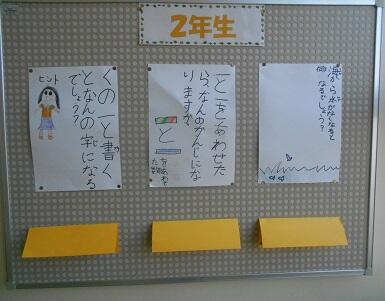 2年生
海から水がなくなると
何になるでしょう?
一と二をあわせた
ら、なんのかんじにな
りますか
と
をあわせ
た数
くの一と書く
となんの字になる
でしょう?
ヒント